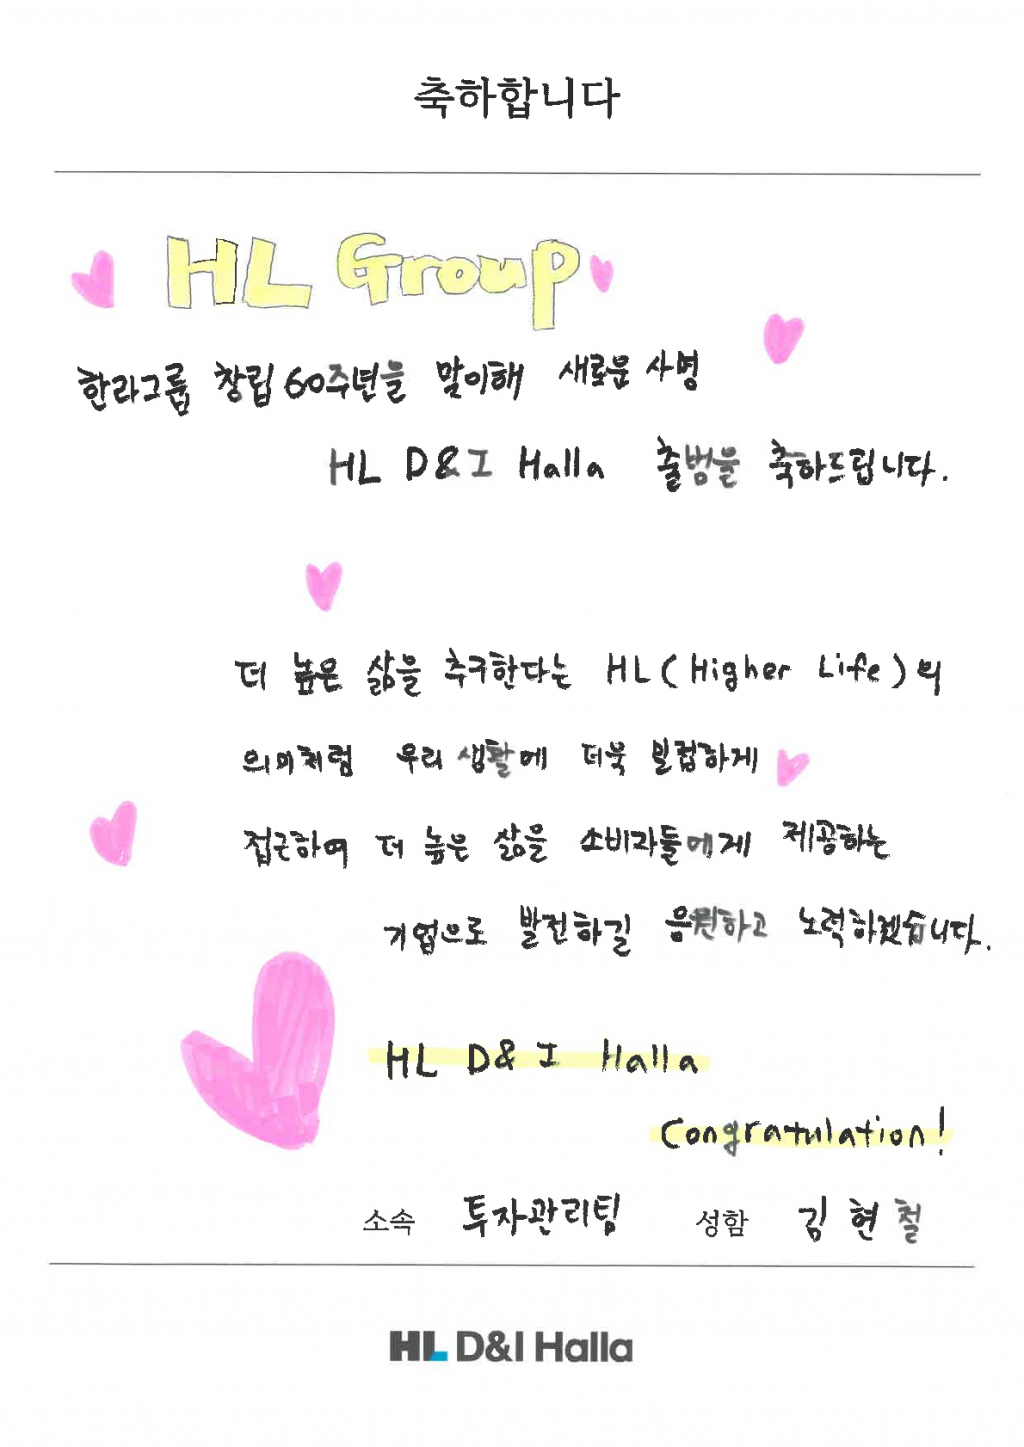 축하합니다
HL Group
한라그룹 창립 60주년을 맞이해 새로운 사명
HL D&I Halla 출범을 축하드립니다.
더 높은 삶을 추구한다는 HL(Higher Life)의
의미처럼 우리 생활에 더욱 밀접하게
접근하여 더 높은 삶을 소비자들에게 제공하는
기업으로 발전하길 응원하고 노력하겠습니다.
HL D&I Halla
Congratulation!
소속 투자관리팀 성함 김현철
HL D&I Halla